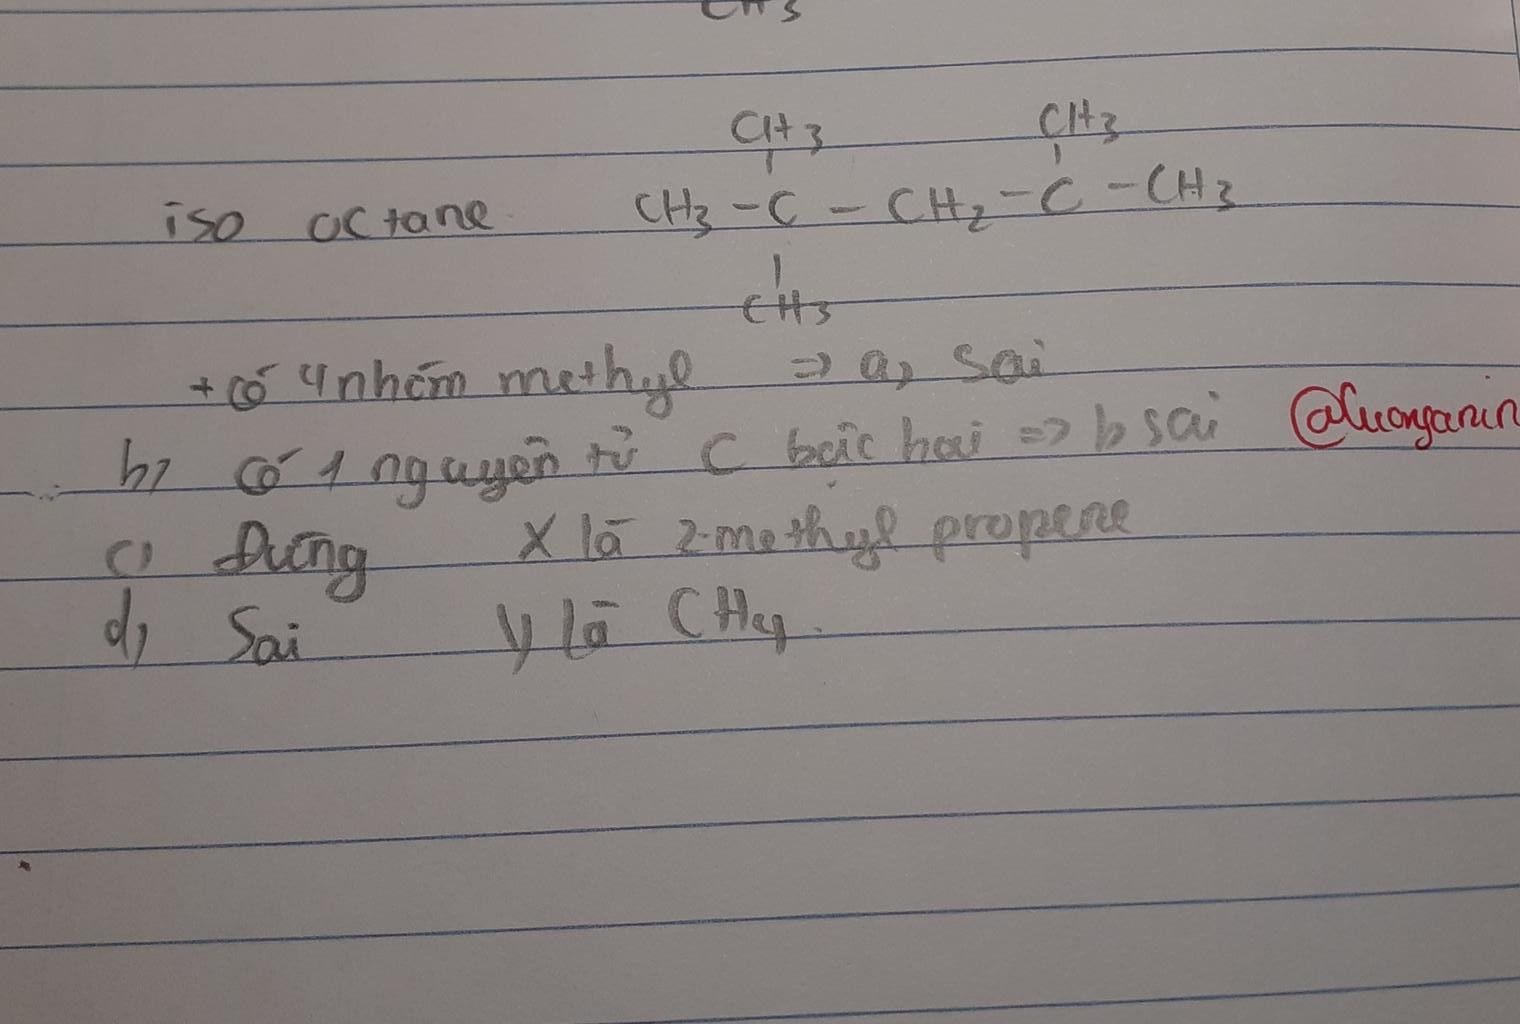 CH3
CH3 CH3
iso octane CH3 - C - CH2 - C - CH3
CH3
+ có 4 nhóm methyl => a, sai
b, có 1 nguyên tử C bậc hai => b sai @luonganin
c, Đúng X là 2-methyl propene
d, Sai Y là CH4.